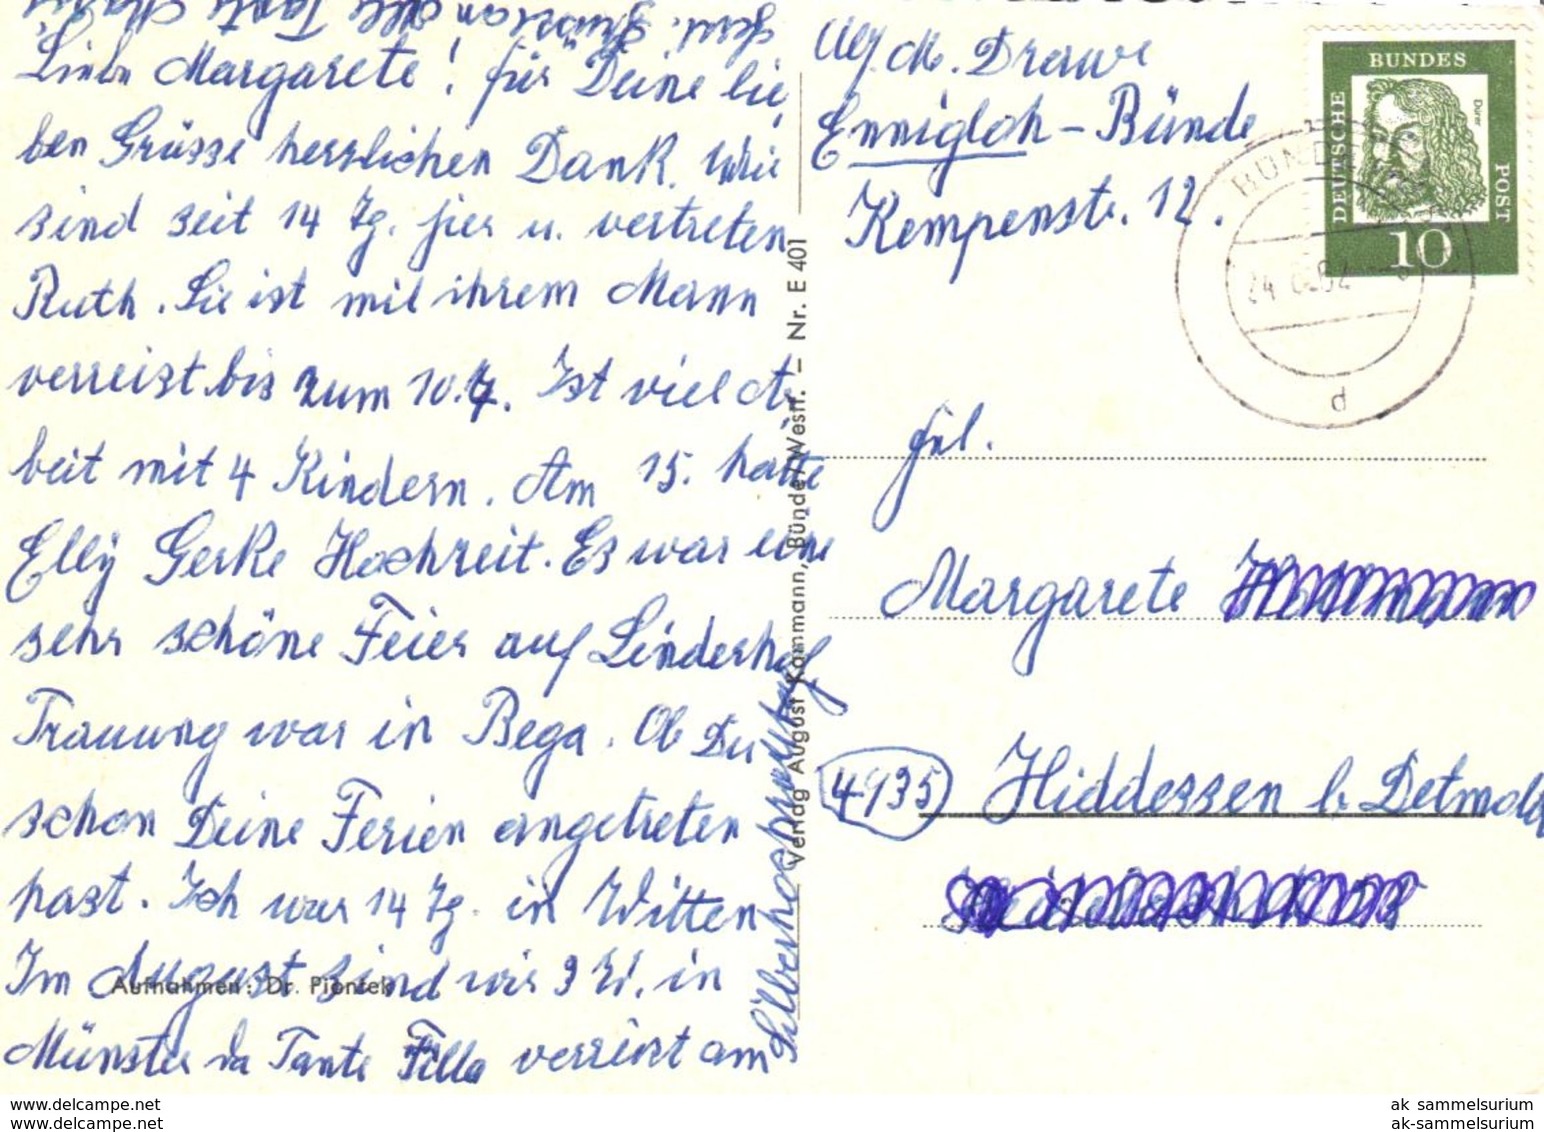 Liebe Margarete! Für Deine lie
ben Grüsse herzlichen Dank. Wir
sind seit 14 Tg. hier u. vertreten
Ruth. Sie ist mit ihrem Mann
verreist bis zum 10.7. Ist viel Ar
beit mit 4 Kindern. Am 15. hatte
Elly Gerke Hochzeit. Es war eine
sehr schöne Feier auf Linderhof
Trauung war in Bega. Ob Du
schon Deine Ferien angetreten
hast. Ich war 14 Tg. in Witten
Im August sind wir 3 W. in
Münster da Tante verreist am
Silberhochzeitstag
Tante
Aufnahmen: Dr. Piontek
Verlag August Kammann, Bünde/Westf. – Nr. E 401
M. Drawe
Ennigloh – Bünde
Kempenstr. 12.
DEUTSCHE
BUNDES
POST
Dürer
10
BÜNDE
24 62
d
Frl.
Margarete
4935 Hiddessen b. Detmold
www.delcampe.net
ak_sammelsurium
www.delcampe.net
ak-sammelsurium